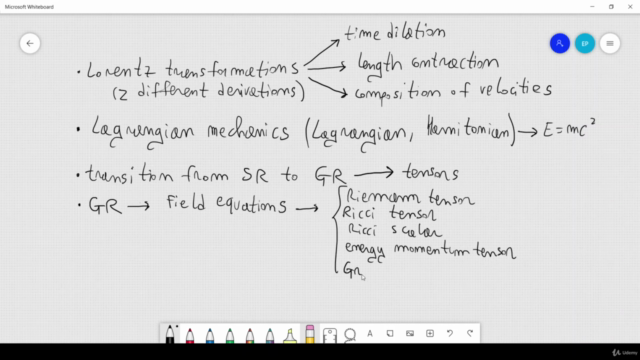 Microsoft Whiteboard
time dilation
• Lorentz transformations → length contraction
(2 different derivations) composition of velocities
• Lagrangian mechanics (Lagrangian, Hamiltonian) → E=mc²
• transition from SR to GR → tensors
• GR → Field equations → Riemann tensor
Ricci tensor
Ricci scalar
energy momentum tensor
Gr
EP
Udemy